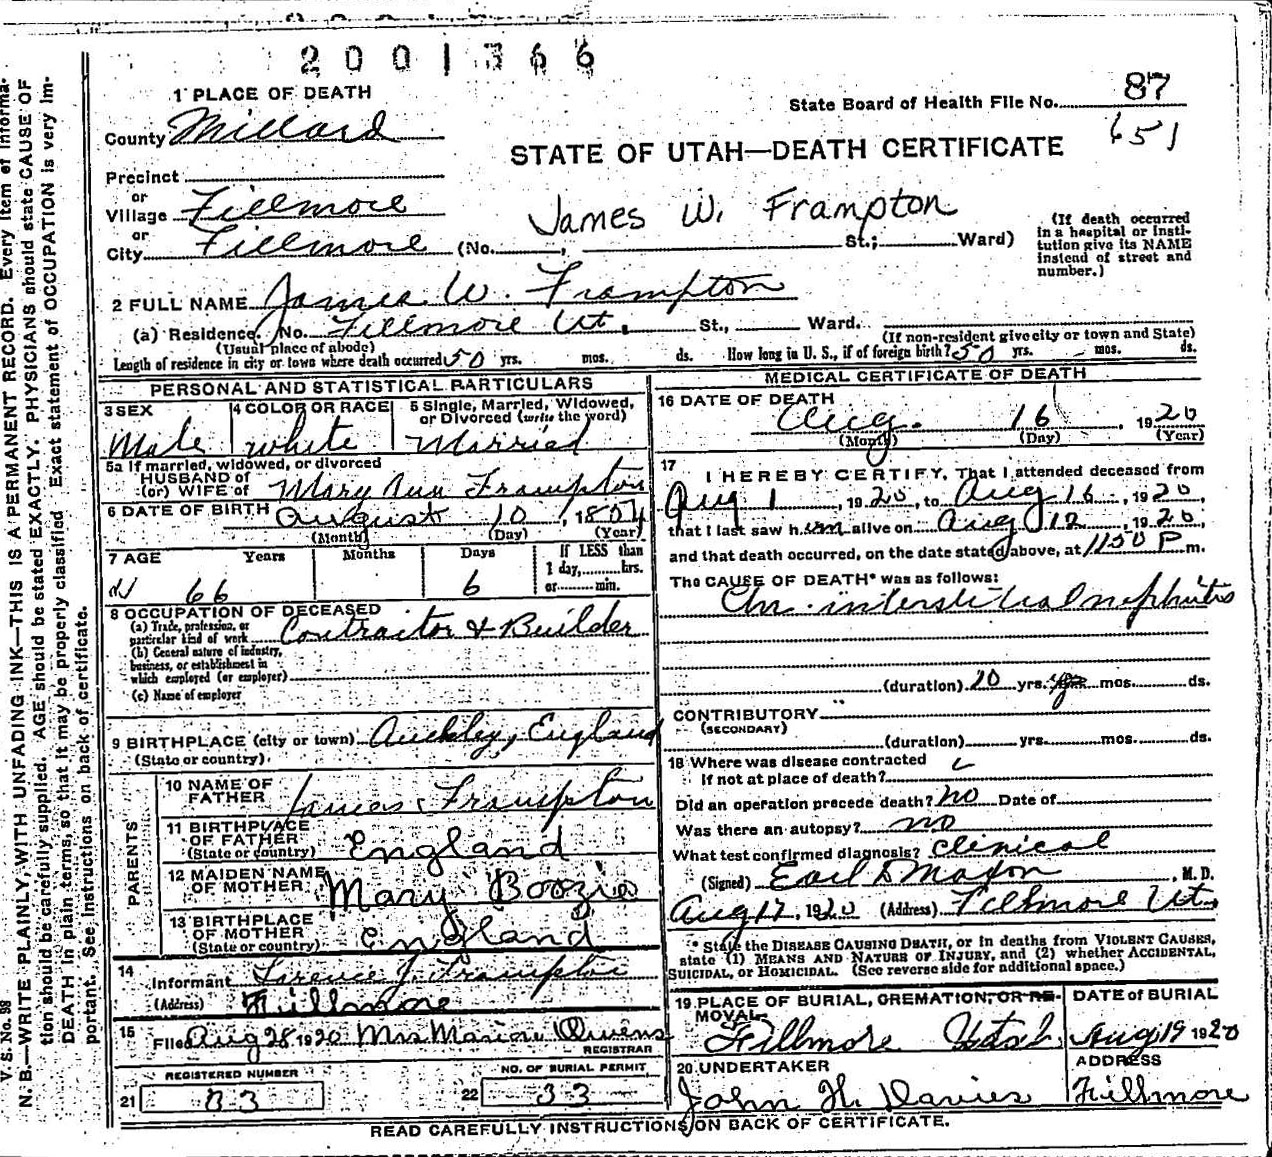 2001366
1 PLACE OF DEATH
State Board of Health File No. 87
651
County Millard
STATE OF UTAH—DEATH CERTIFICATE
Precinct
or
Village Fillmore
James W. Frampton
or
City Fillmore (No. , St.; Ward)
(If death occurred in a hospital or institution give its NAME instead of street and number.)
2 FULL NAME James W. Frampton
(a) Residence. No. Fillmore Ut. St., Ward.
(Usual place of abode) (If non-resident give city or town and State)
Length of residence in city or town where death occurred 50 yrs. mos. ds. How long in U. S., if of foreign birth? 50 yrs. mos. ds.
PERSONAL AND STATISTICAL PARTICULARS
3 SEX 4 COLOR OR RACE 5 Single, Married, Widowed, or Divorced (write the word)
Male white Married
5a If married, widowed, or divorced
HUSBAND of
(or) WIFE of Mary Ann Frampton
6 DATE OF BIRTH August 10, 18
(Month) (Day) (Year)
7 AGE Years Months Days If LESS than
1 day, hrs.
66 6 or min.
8 OCCUPATION OF DECEASED
(a) Trade, profession, or
particular kind of work Contractor & Builder
(b) General nature of industry,
business, or establishment in
which employed (or employer)
(c) Name of employer
9 BIRTHPLACE (city or town) Auckley, England
(State or country)
PARENTS
10 NAME OF
FATHER James Frampton
11 BIRTHPLACE
OF FATHER
(State or country) England
12 MAIDEN NAME
OF MOTHER Mary Boozie
13 BIRTHPLACE
OF MOTHER
(State or country) England
14
Informant J. Frampton
(Address) Fillmore
15
Filed Aug 28 1920 Mrs Marion Owens
REGISTRAR
REGISTERED NUMBER NO. OF BURIAL PERMIT
21 33 22 33
MEDICAL CERTIFICATE OF DEATH
16 DATE OF DEATH
Aug. 16, 1920
(Month) (Day) (Year)
17
I HEREBY CERTIFY, That I attended deceased from
Aug 1, 1920, to Aug 16, 1920,
that I last saw him alive on Aug 12, 1920,
and that death occurred, on the date stated above, at 1150 P m.
The CAUSE OF DEATH* was as follows:
Chr. interstitial nephritis
(duration) 10 yrs. mos. ds.
CONTRIBUTORY
(SECONDARY)
(duration) yrs. mos. ds.
18 Where was disease contracted
if not at place of death?
Did an operation precede death? no Date of
Was there an autopsy? no
What test confirmed diagnosis? clinical
(Signed) Earl D Maxon, M. D.
Aug 17, 1920 (Address) Fillmore Ut.
* State the DISEASE CAUSING DEATH, or in deaths from VIOLENT CAUSES,
state (1) MEANS AND NATURE OF INJURY, and (2) whether ACCIDENTAL,
SUICIDAL, or HOMICIDAL. (See reverse side for additional space.)
19 PLACE OF BURIAL, CREMATION, OR RE- DATE of BURIAL
MOVAL
Fillmore Utah. Aug 19 1920
20 UNDERTAKER ADDRESS
John H. Davies Fillmore
READ CAREFULLY INSTRUCTIONS ON BACK OF CERTIFICATE.
V. S. No. 98
N. B.—WRITE PLAINLY, WITH UNFADING INK—THIS IS A PERMANENT RECORD. Every item of informa-
tion should be carefully supplied. AGE should be stated EXACTLY. PHYSICIANS should state CAUSE OF
DEATH in plain terms, so that it may be properly classified. Exact statement of OCCUPATION is very im-
portant. See instructions on back of certificate.